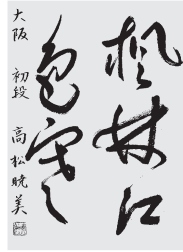 楓林江
色寒
大阪 初段 高松暁美